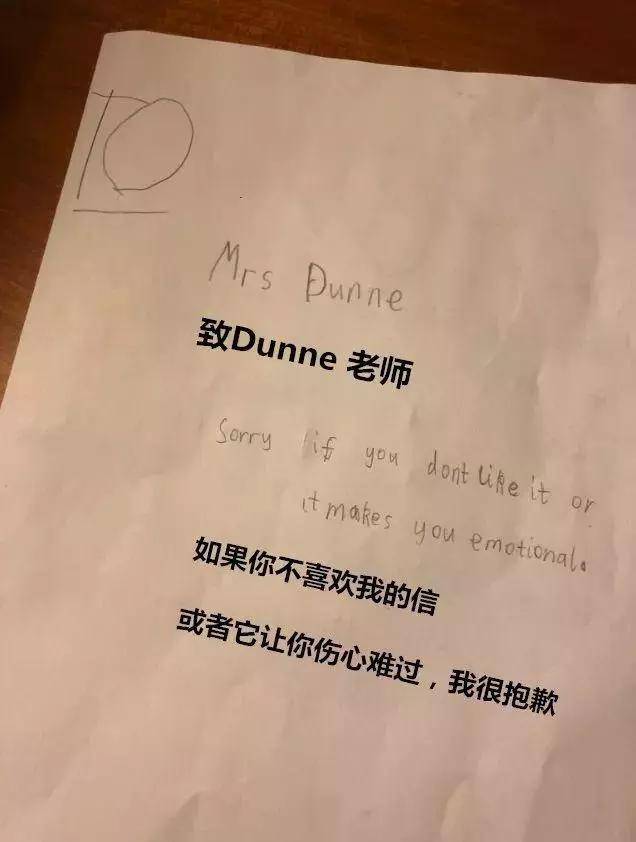 TO
Mrs Dunne
致Dunne 老师
Sorry if you dont like it or
it makes you emotional.
如果你不喜欢我的信
或者它让你伤心难过，我很抱歉